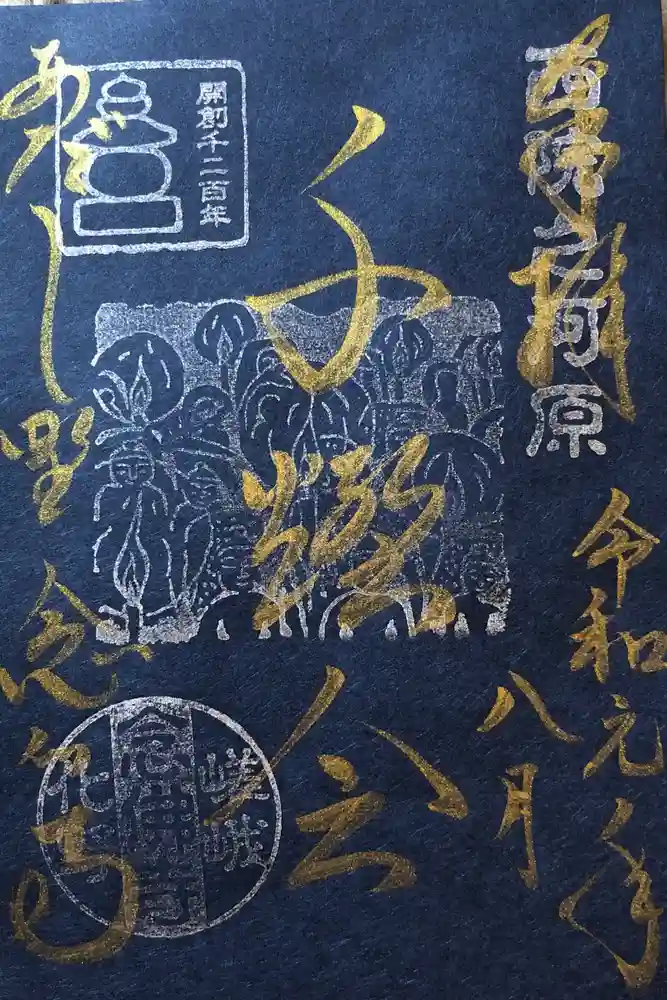 奉拝
西院之河原
令和元年
八月
千燈会
開創千二百年
あだし野念仏寺
嵯峨
念佛寺
化野